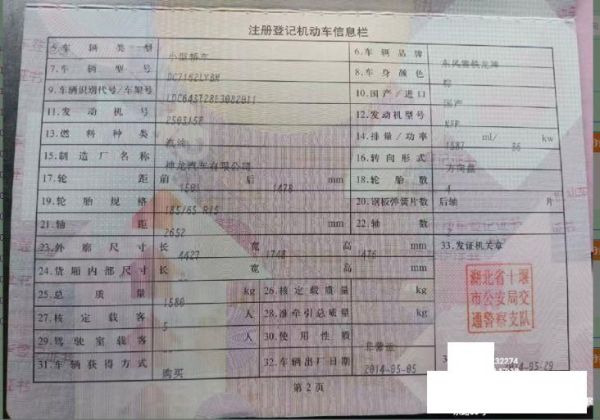 注册登记机动车信息栏
5.车辆类型 小型轿车 6.车辆品牌 东风雪铁龙牌
7.车辆型号 8.车身颜色 棕
9.车辆识别代号/车架号 10.国产/进口 国产
11.发动机号 12.发动机型号
13.燃料种类 汽油 14.排量/功率 1587 ml/ 86 kw
15.制造厂名称 神龙汽车有限公司 16.转向形式 方向盘
17.轮距 前 后 1478 mm 18.轮胎数 4
19.轮胎规格 185/65 R15 20.钢板弹簧片数 后轴 片
21.轴距 2652 mm 22.轴数
23.外廓尺寸 长 4427 宽 1748 高 1476 mm 33.发证机关章
24.货厢内部尺寸 长 宽 高 mm
25.总质量 1580 kg 26.核定载质量 kg
27.核定载客 5 人 28.准牵引总质量 kg
29.驾驶室载客 人 30.使用性质 非营运
31.车辆获得方式 购买 32.车辆出厂日期 2014-05-05
湖北省十堰
市公安局交
通警察支队
32274
2014-05-29
第2页